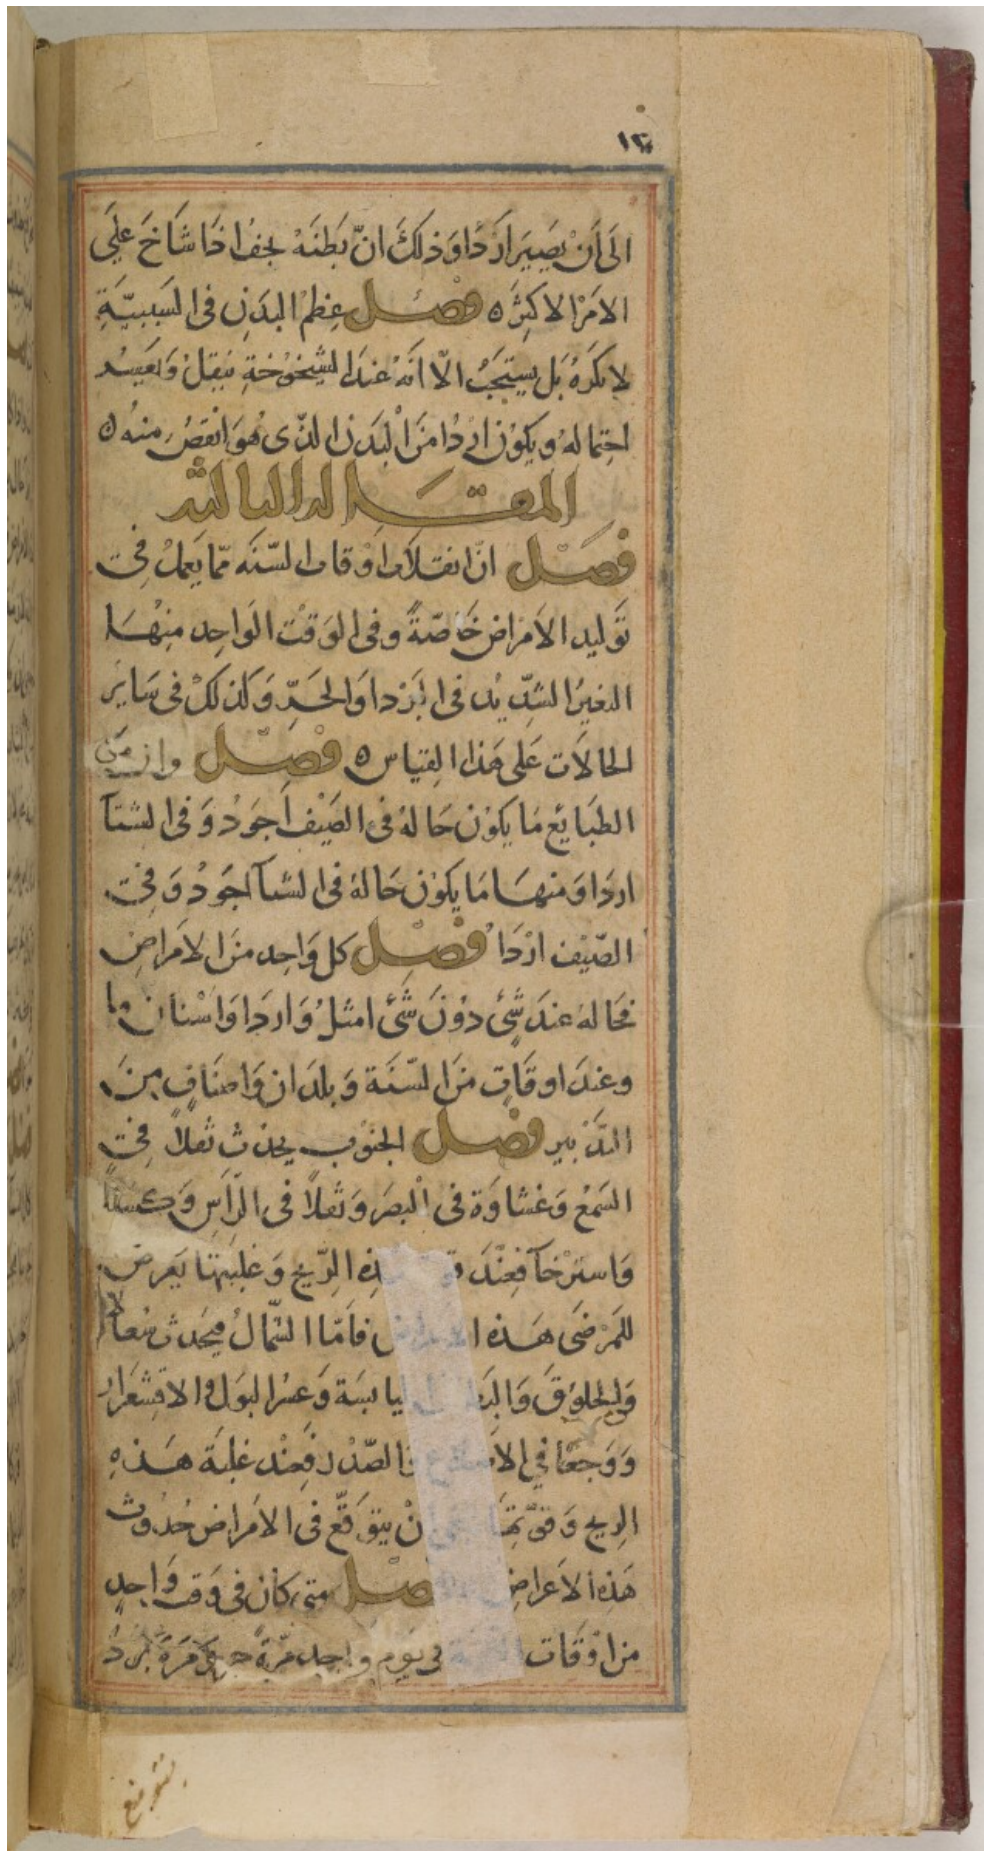 الى أن يصير اردا وذلك انّ بطنه يجف اذا شاخ على
الامر الاكثر ه فصل عظم البدن فى الشبيبيّة
لا يكره بل يستحبّ الّا انّه عند الشيخوخة يثقل ويعسر
احتماله ويكون اردا من البدن الذى هو انقص منه
المقالة الثالثة
فصل انّ انقلاب اوقات السّنه ممّا يعمل فى
توليد الامراض خاصّةً وفى الوقت الواحد منها
التغير الشديد فى البرد او الحرّ وكذلك فى ساير
الحالات على هذا القياس ه فصل وان من
الطبايع ما يكون حاله فى الصيف أجود وفى الشتآ
اردا ومنها ما يكون حاله فى الشتآ اجود وفى
الصّيف اردا فصل كل واحد من الامراض
فحاله عند شئ دون شئ امثل واردا واسنان ما
وعند اوقات من السّنة وبلدان واصناف من
التدبير فصل الجنوب يحدث ثقلا فى
السمع وغشاوة فى البصر وثقلاً فى الرّاس وكسلاً
واسترخآ فعند الرّيح وغلبتها يعرض
للمرضى هذه فامّا الشّمال فيحدث سعالا
والحلوق اليابسة وعسر البول والاقشعرار
ووجعا فى الصّدر فعند غلبة هذه
الريح وقوّتها أن يتوقّع فى الامراض حدوث
هذه الاعراض فصل متى كان فى وقت واحد
من اوقات فى يوم واحد مرّة حر ومرة برد